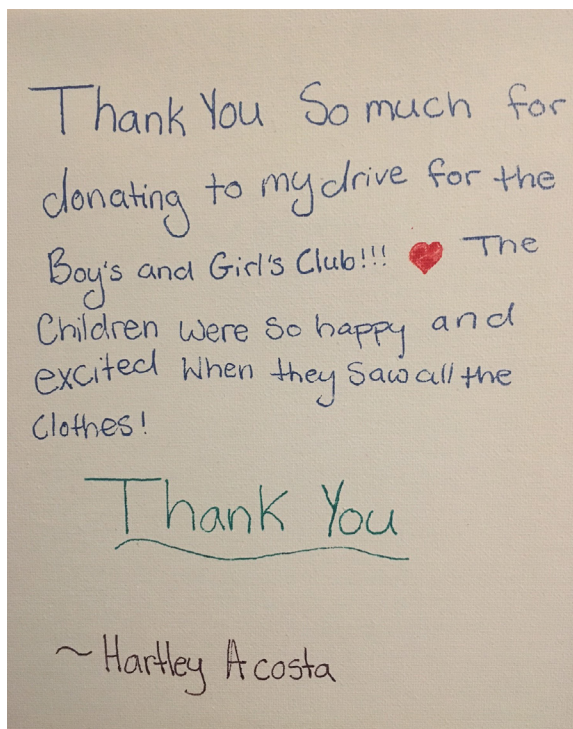 Thank You So much for
donating to my drive for the
Boy's and Girl's Club!!! ❤ The
Children were so happy and
excited when they saw all the
Clothes!
Thank You
~Hartley Acosta